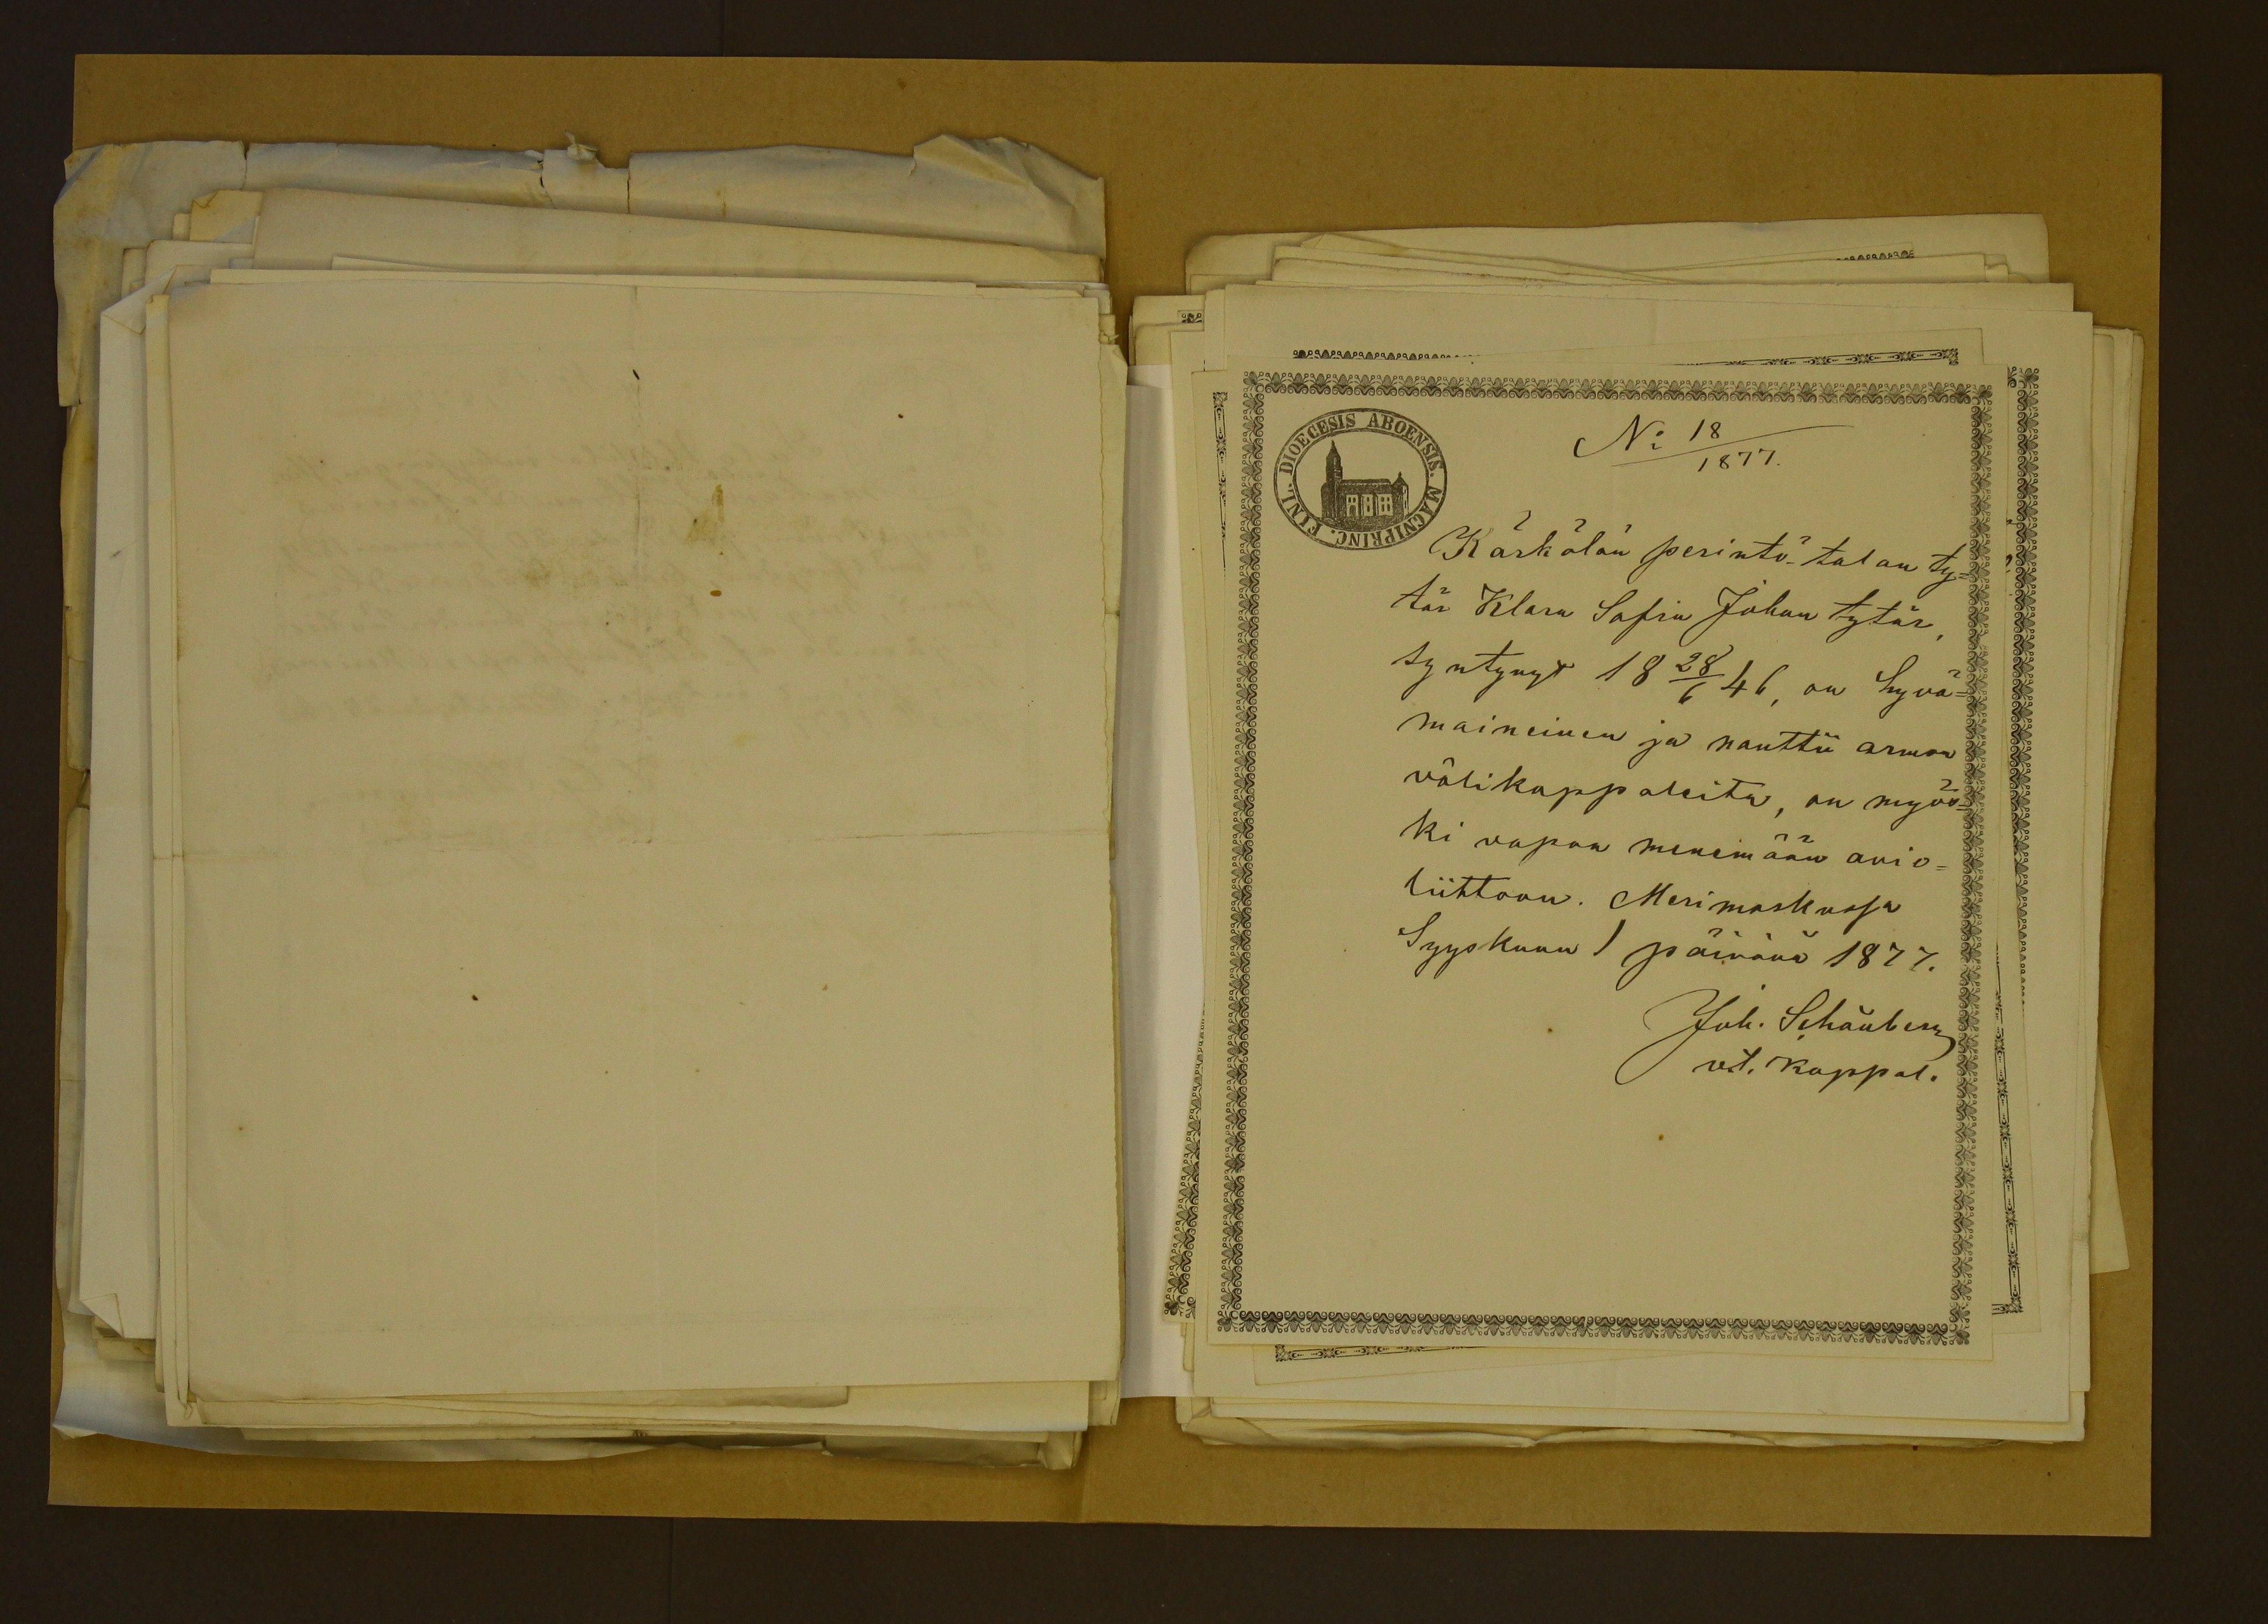 DIOECESIS ABOENSIS. MAGNIPRINC. FINL.
No 18
1877.
Kärkölän perintö-talon ty=
tär Klara Sofia Johan tytär,
syntynyt 18 28/6 46, on hyvä=
maineinen ja nauttii armon
välikappaleita, on myös=
ki vapaa menemään avio=
liittoon. Merimaskussa
Syyskuun 1 päivänä 1877.
Joh.
vt. Kappal.